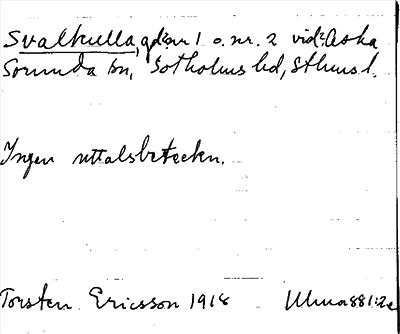 Svalkulla, gd nr 1 o. nr. 2 vid Aska
Sorunda sn, Sotholms hd, Sthms l.
Ingen uttalsbeteckn.
Torsten Ericsson 1918 Ulma 881:2a